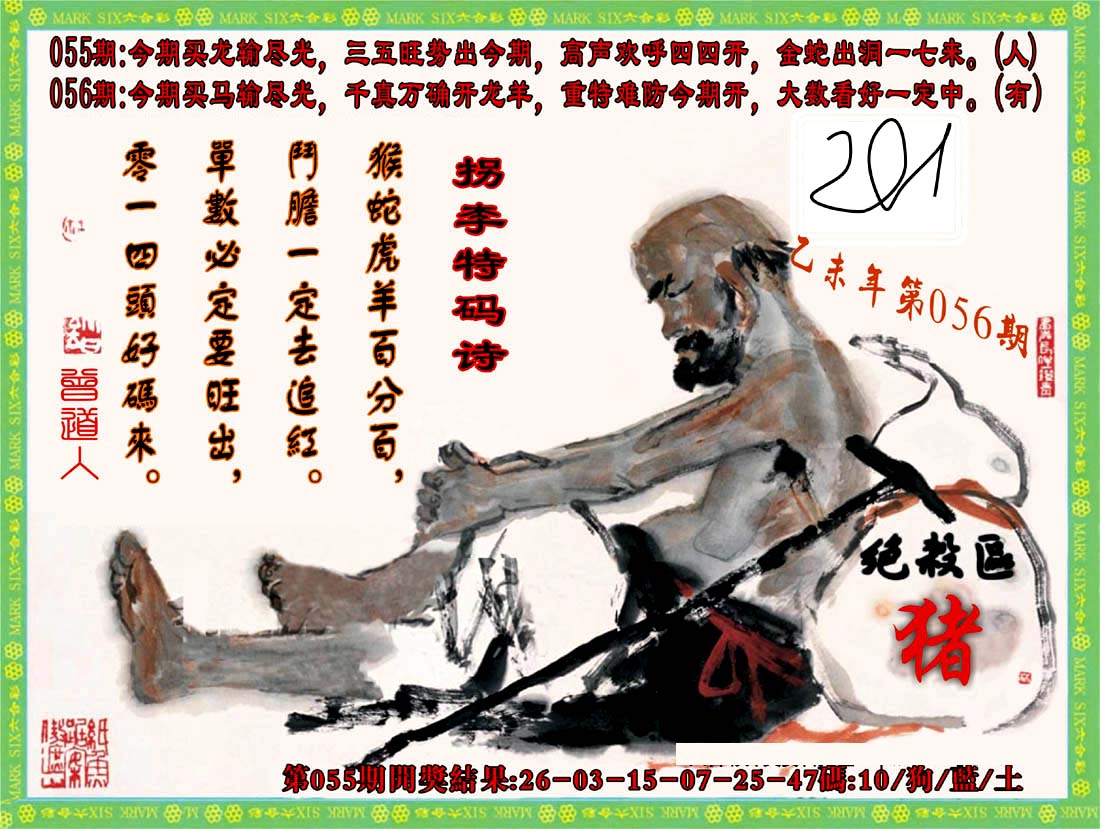 MARK SIX六合彩
055期:今期买龙输尽光，三五旺势出今期，高声欢呼四四开，金蛇出洞一七来。(人)
056期:今期买马输尽光，千真万确开龙羊，重特难防今期开，大数看好一定中。(有)
201
乙未年第056期
拐李特码诗
猴蛇虎羊百分百，
鬥膽一定去追紅。
單數必定要旺出，
零一四頭好碼來。
曾道人
绝殺區
猪
第055期開獎結果:26-03-15-07-25-47碼:10/狗/藍/土